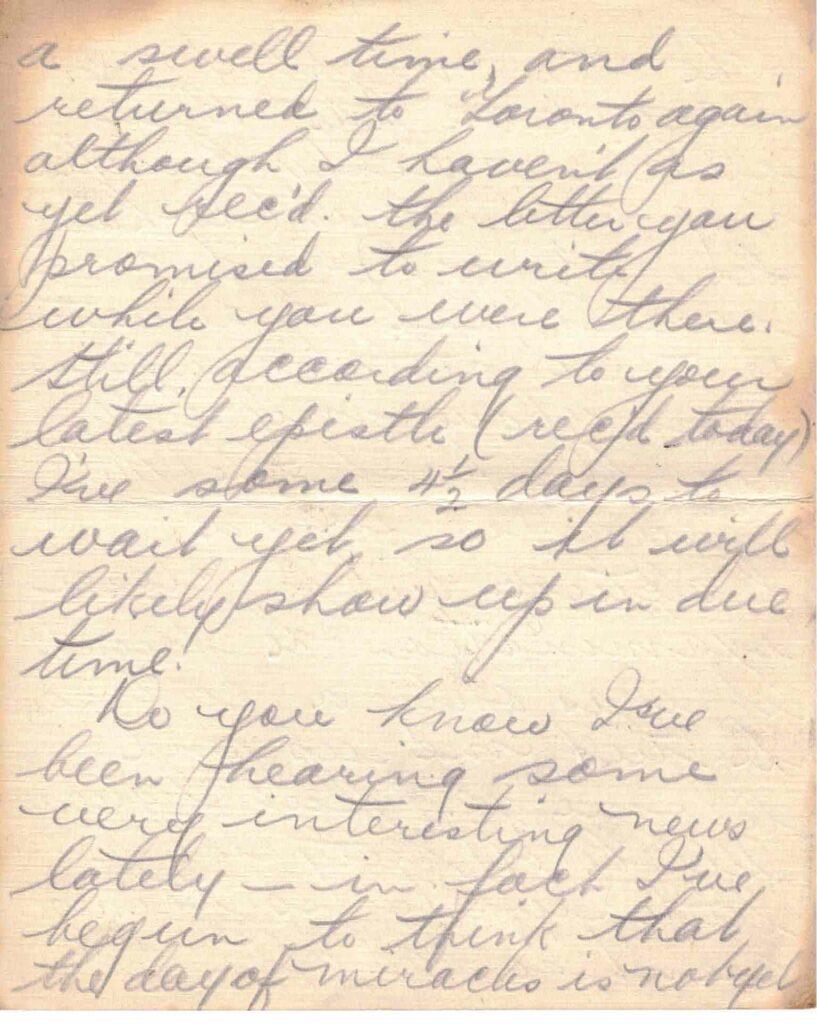 a swell time, and
returned to Toronto again
although I haven't as
yet rec'd. the letter you
promised to write
while you were there.
Still, according to your
latest epistle (rec'd today)
I've some 4½ days to
wait yet, so it will
likely show up in due
time.
Do you know I've
been hearing some
very interesting news
lately — in fact I've
begun to think that
the day of miracles is not yet